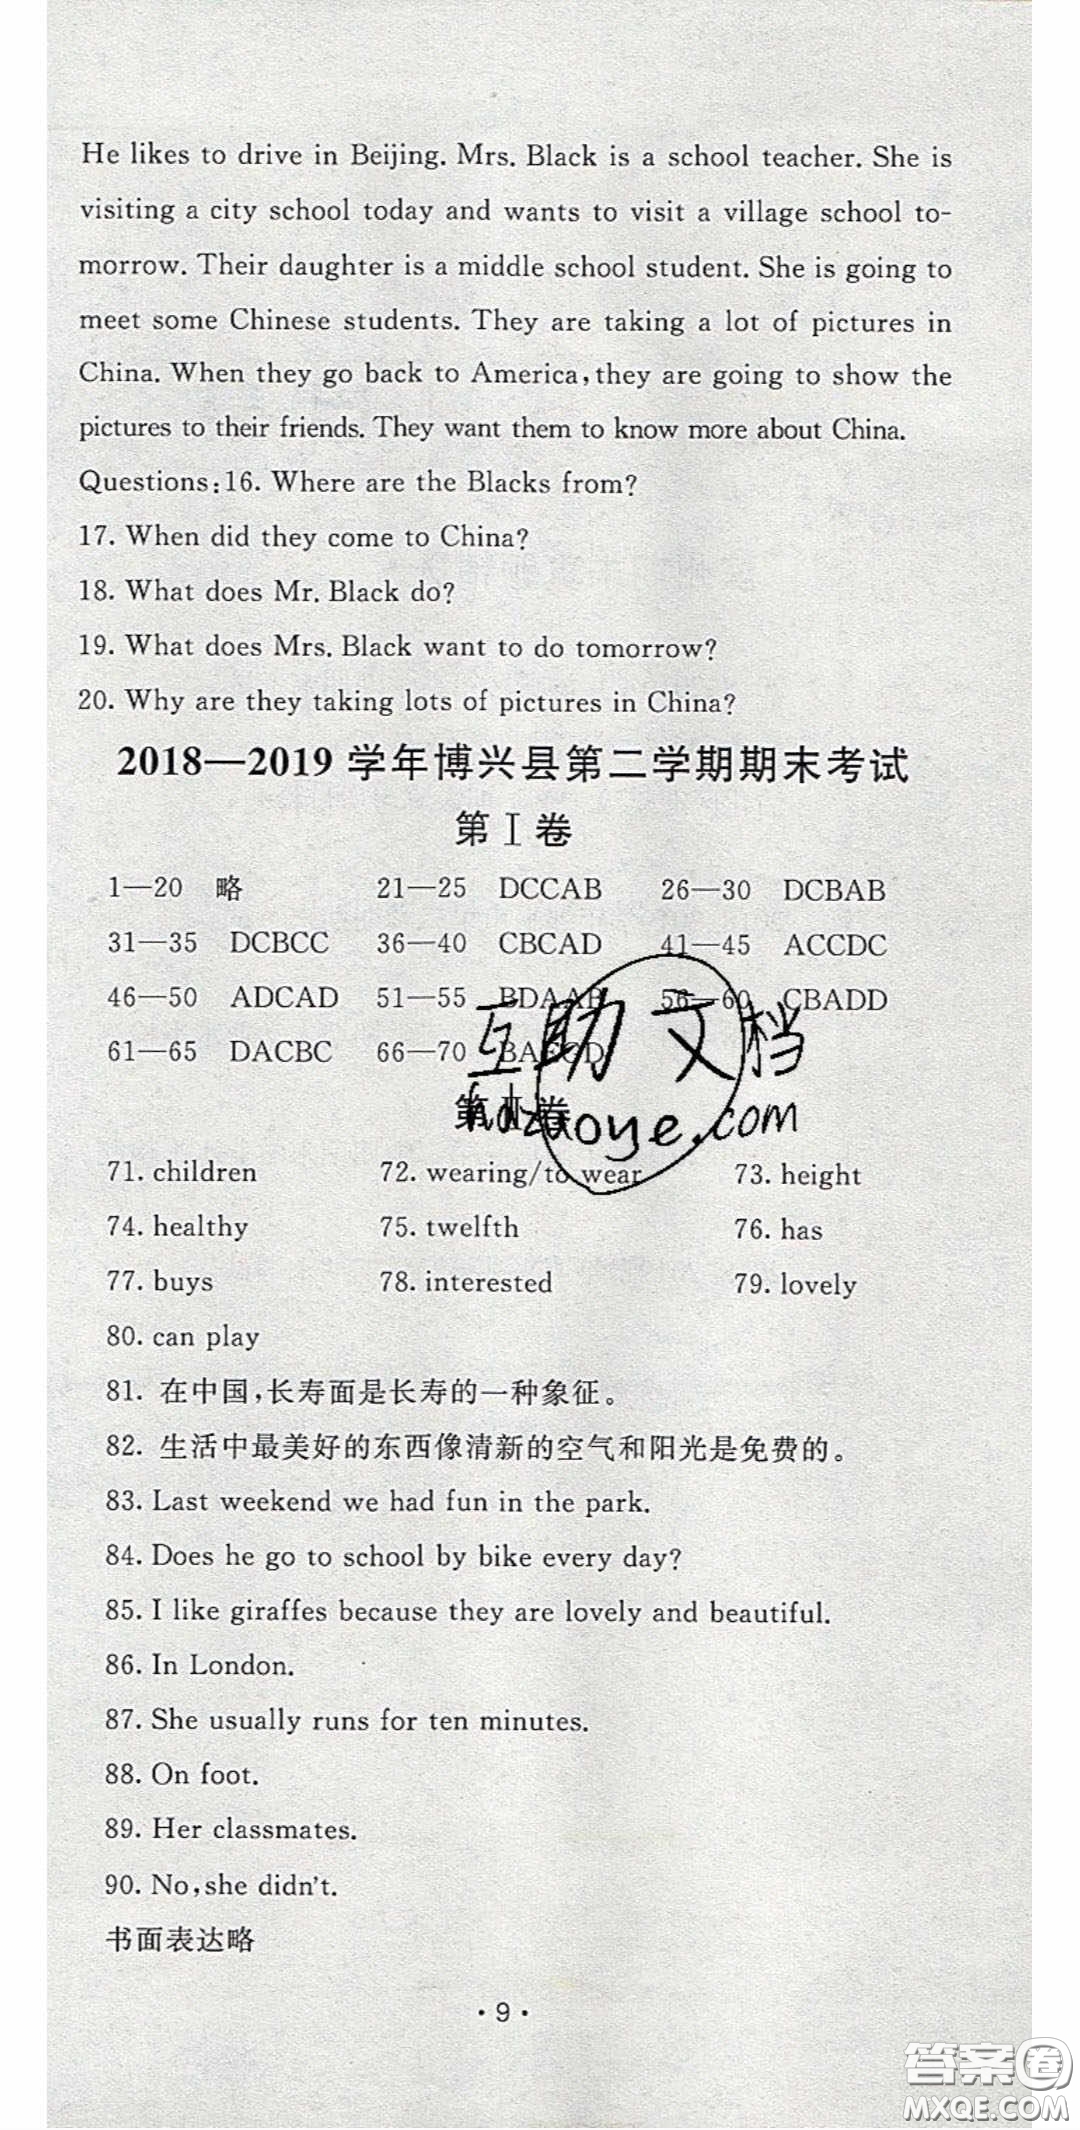 He likes to drive in Beijing. Mrs. Black is a school teacher. She is
visiting a city school today and wants to visit a village school to-
morrow. Their daughter is a middle school student. She is going to
meet some Chinese students. They are taking a lot of pictures in
China. When they go back to America, they are going to show the
pictures to their friends. They want them to know more about China.
Questions: 16. Where are the Blacks from?
17. When did they come to China?
18. What does Mr. Black do?
19. What does Mrs. Black want to do tomorrow?
20. Why are they taking lots of pictures in China?
2018—2019 学年博兴县第二学期期末考试
第 I 卷
1—20 略 21—25 DCCAB 26—30 DCBAB
31—35 DCBCC 36—40 CBCAD 41—45 ACCDC
46—50 ADCAD 51—55 BDAAB 56—60 CBADD
61—65 DACBC 66—70
互助文档
第 II 卷
71. children 72. wearing/to wear 73. height
74. healthy 75. twelfth 76. has
77. buys 78. interested 79. lovely
80. can play
81. 在中国，长寿面是长寿的一种象征。
82. 生活中最美好的东西像清新的空气和阳光是免费的。
83. Last weekend we had fun in the park.
84. Does he go to school by bike every day?
85. I like giraffes because they are lovely and beautiful.
86. In London.
87. She usually runs for ten minutes.
88. On foot.
89. Her classmates.
90. No, she didn't.
书面表达略
· 9 ·
答案卷
MXQE.COM